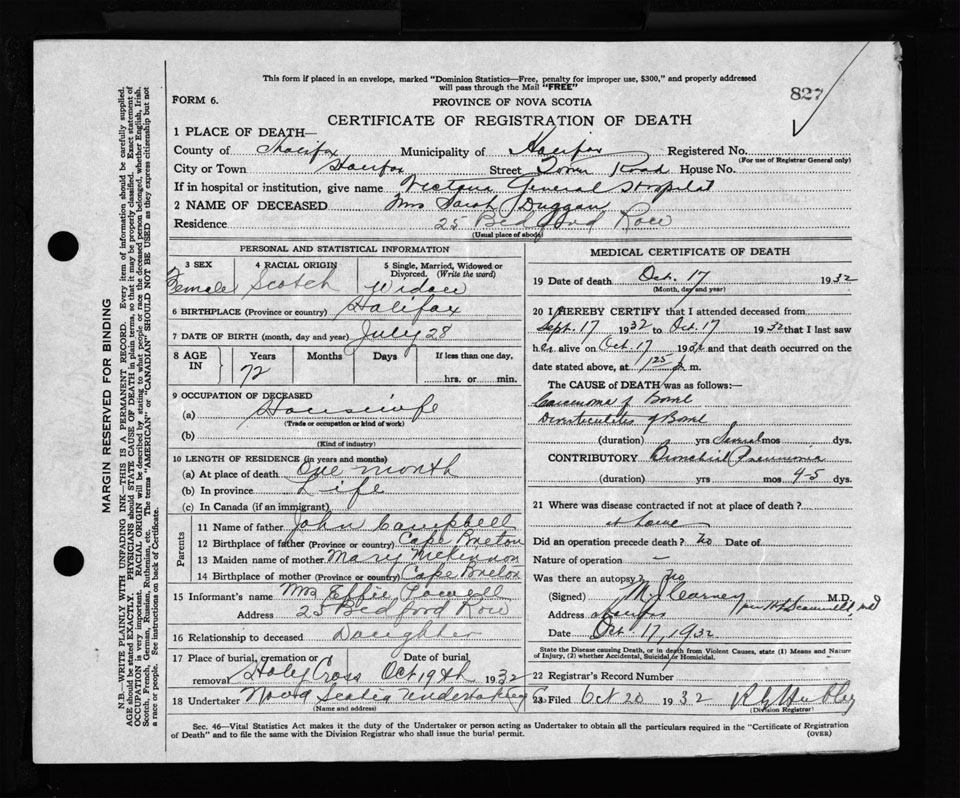 This form if placed in an envelope, marked "Dominion Statistics—Free, penalty for improper use, $300," and properly addressed
will pass through the Mail "FREE"
827
FORM 6.
PROVINCE OF NOVA SCOTIA
CERTIFICATE OF REGISTRATION OF DEATH
1 PLACE OF DEATH—
County of Halifax Municipality of Halifax Registered No.
(For use of Registrar General only)
City or Town Halifax Street Tower Road House No.
If in hospital or institution, give name Victoria General Hospital
2 NAME OF DECEASED Mrs Sarah Duggan
Residence 25 Bedford Row
(Usual place of abode)
PERSONAL AND STATISTICAL INFORMATION
3 SEX 4 RACIAL ORIGIN 5 Single, Married, Widowed or
Divorced. (Write the word)
Female Scotch Widow
6 BIRTHPLACE (Province or country) Halifax
7 DATE OF BIRTH (month, day and year) July 28
8 AGE IN Years Months Days If less than one day,
72 hrs. or min.
9 OCCUPATION OF DECEASED
(a) Housewife
(Trade or occupation or kind of work)
(b)
(Kind of industry)
10 LENGTH OF RESIDENCE (in years and months)
(a) At place of death One month
(b) In province Life
(c) In Canada (if an immigrant)
Parents
11 Name of father John Campbell
12 Birthplace of father (Province or country) Cape Breton
13 Maiden name of mother Mary McKinnon
14 Birthplace of mother (Province or country) Cape Breton
15 Informant's name Mrs Effie Powell
Address 25 Bedford Row
16 Relationship to deceased Daughter
17 Place of burial, cremation or removal Holy Cross Date of burial Oct 19th 1932
18 Undertaker Nova Scotia Undertaking Co
(Name and address)
MEDICAL CERTIFICATE OF DEATH
19 Date of death Oct. 17 1932
(Month, day and year)
20 I HEREBY CERTIFY that I attended deceased from
Sept. 17 1932 to Oct. 17 1932 that I last saw
her alive on Oct. 17 1932 and that death occurred on the
date stated above, at 1.25 m.
The CAUSE of DEATH was as follows:—
Carcinoma of Bowel
Diverticulitis of Bowel
(duration) yrs Several mos dys.
CONTRIBUTORY Bronchial Pneumonia
(duration) yrs mos 4-5 dys.
21 Where was disease contracted if not at place of death?
at home
Did an operation precede death? No Date of
Nature of operation —
Was there an autopsy? No
(Signed) M.D.
Address Halifax
Date Oct. 17, 1932
State the Disease causing Death, or in death from Violent Causes, state (1) Means and Nature
of Injury, (2) whether Accidental, Suicidal or Homicidal.
22 Registrar's Record Number
23 Filed Oct 20 1932
(Division Registrar)
Sec. 46—Vital Statistics Act makes it the duty of the Undertaker or person acting as Undertaker to obtain all the particulars required in the "Certificate of Registration
of Death" and to file the same with the Division Registrar who shall issue the burial permit.
(OVER)
MARGIN RESERVED FOR BINDING
N.B.—WRITE PLAINLY WITH UNFADING INK—THIS IS A PERMANENT RECORD. Every item of information should be carefully supplied.
AGE should be stated EXACTLY. PHYSICIANS should STATE CAUSE OF DEATH in plain terms, so that it may be properly classified. Exact statement of
OCCUPATION is very important. RACIAL ORIGIN will be described by stating to what people or race the deceased person belonged, whether English, Irish,
Scotch, French, German, Russian, Ruthenian, etc. The terms "AMERICAN" or "CANADIAN" SHOULD NOT BE USED as they express citizenship but not
a race or people. See instructions on back of Certificate.